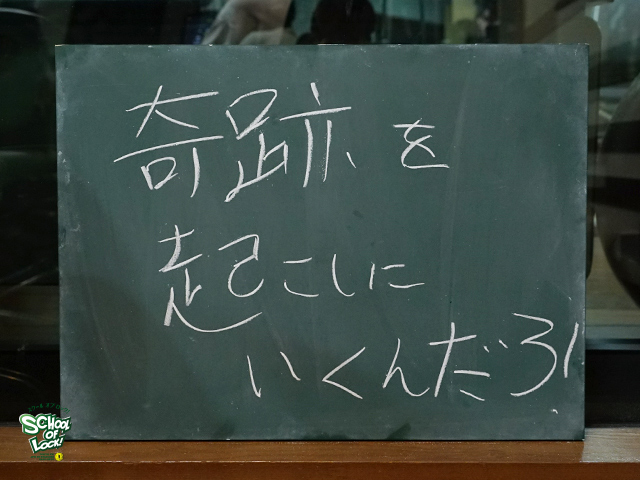 奇跡を
起こしに
いくんだろ!
SCHOOL
OF
LOCK!